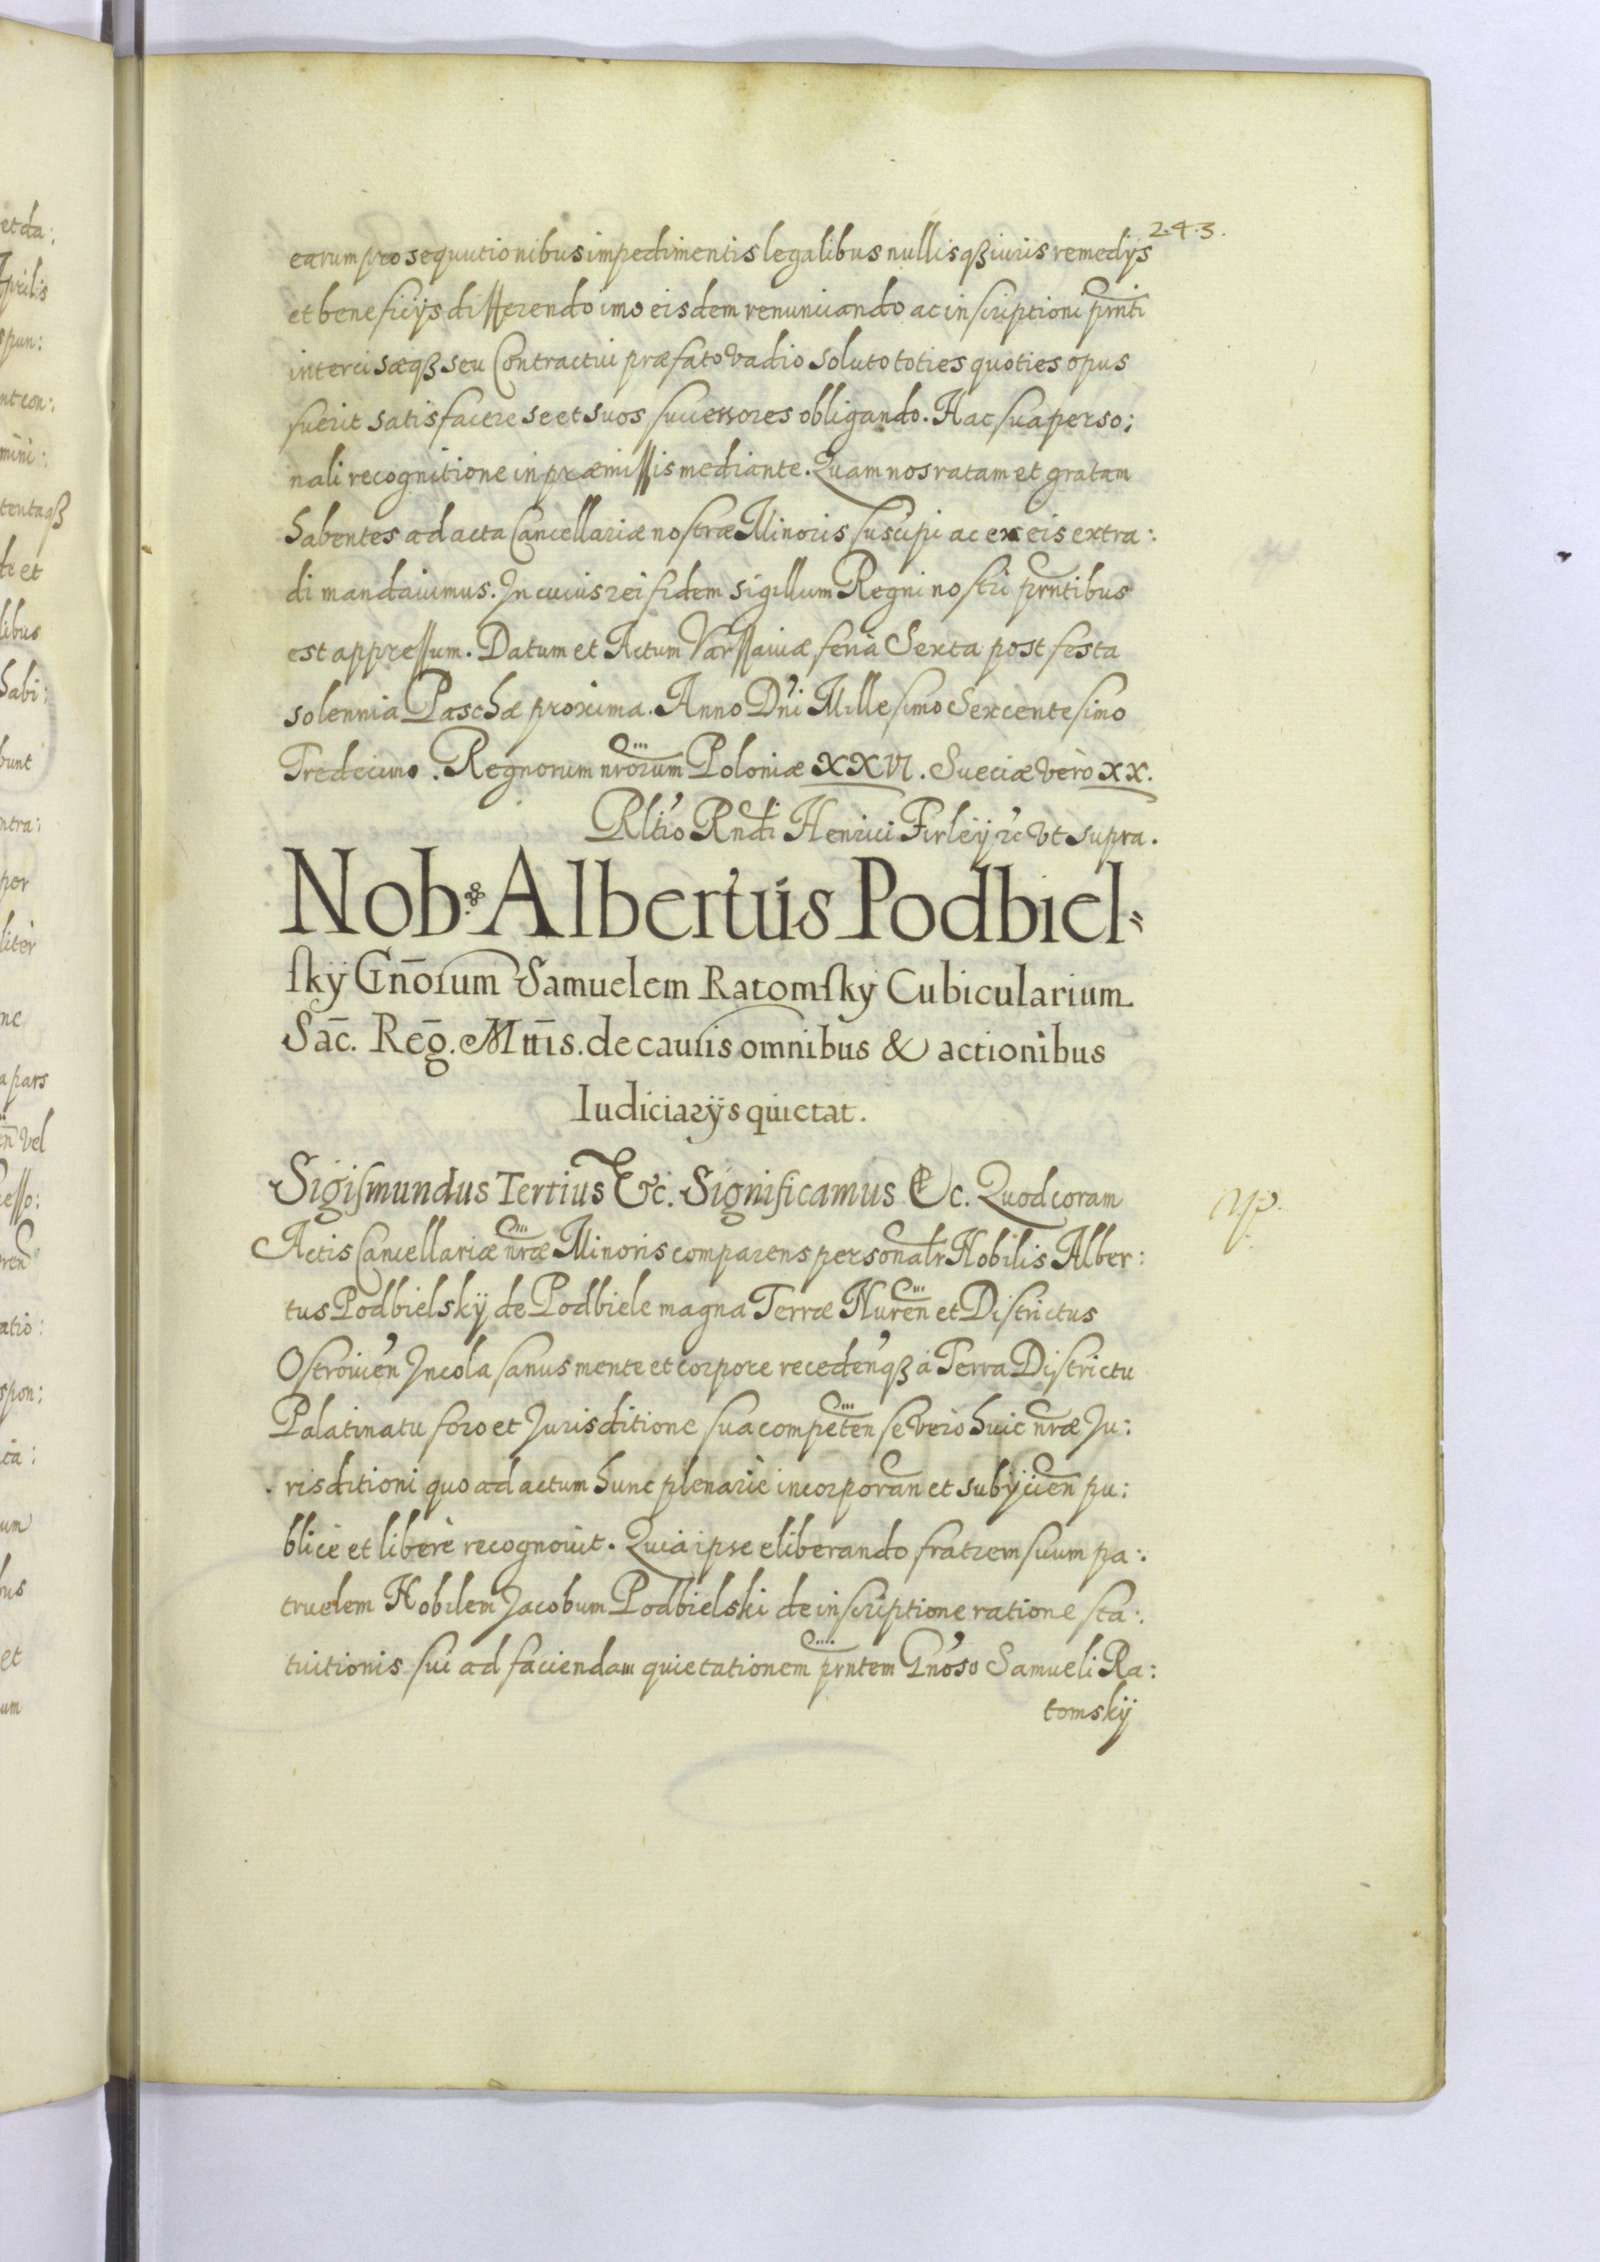 243.
earum prosequutionibus impedimentis legalibus nullisqß iuris remedijs
et beneficijs differendo imo eisdem renunciando ac inscriptioni prnti
intercisæqß seu Contractui præfato vadio soluto toties quoties opus
fuerit satisfacere se et suos successores obligando. Hac sua perso:
nali recognitione in præmissis mediante. Quam nos ratam et gratam
habentes ad acta Cancellariæ nostræ Minoris suscipi ac ex eis extra:
di mandauimus. In cuius rei fidem sigillum Regni nostri prntibus
est appressum. Datum et Actum Varssauiæ feria Sexta post festa
solennia Paschæ proxima. Anno Dni Millesimo Sexcentesimo
Tredecimo. Regnorum nrorum Poloniæ XXVI. Sueciæ vero XX.
Rltio Rndi Henrici Firleÿ rc vt supra.
Nob: Albertus Podbiel=
skÿ Gnorum Samuelem Ratomsky Cubicularium
Sac. Reg. Mttis. de causis omnibus & actionibus
Iudiciarijs quietat.
Sigismundus Tertius &c. Significamus &c. Quod coram
Actis Cancellariæ nræ Minoris comparens personalr Nobilis Alber:
tus Podbielskÿ de Podbiele magna Terræ Nuren et Districtus
Ostrouien Incola sanus mente et corpore recedenqß à Terra Districtu
Palatinatu foro et Jurisditione sua competen se vero huic nræ Ju:
risditioni quo ad actum hunc plenariè incorporan et subijcien pu:
blicè et liberè recognouit. Quia ipse eliberando fratrem suum pa:
truelem Nobilem Jacobum Podbielski de inscriptione ratione sta:
tuitionis sui ad faciendam quietationem prntem Gnoso Samueli Ra:
tomskÿ